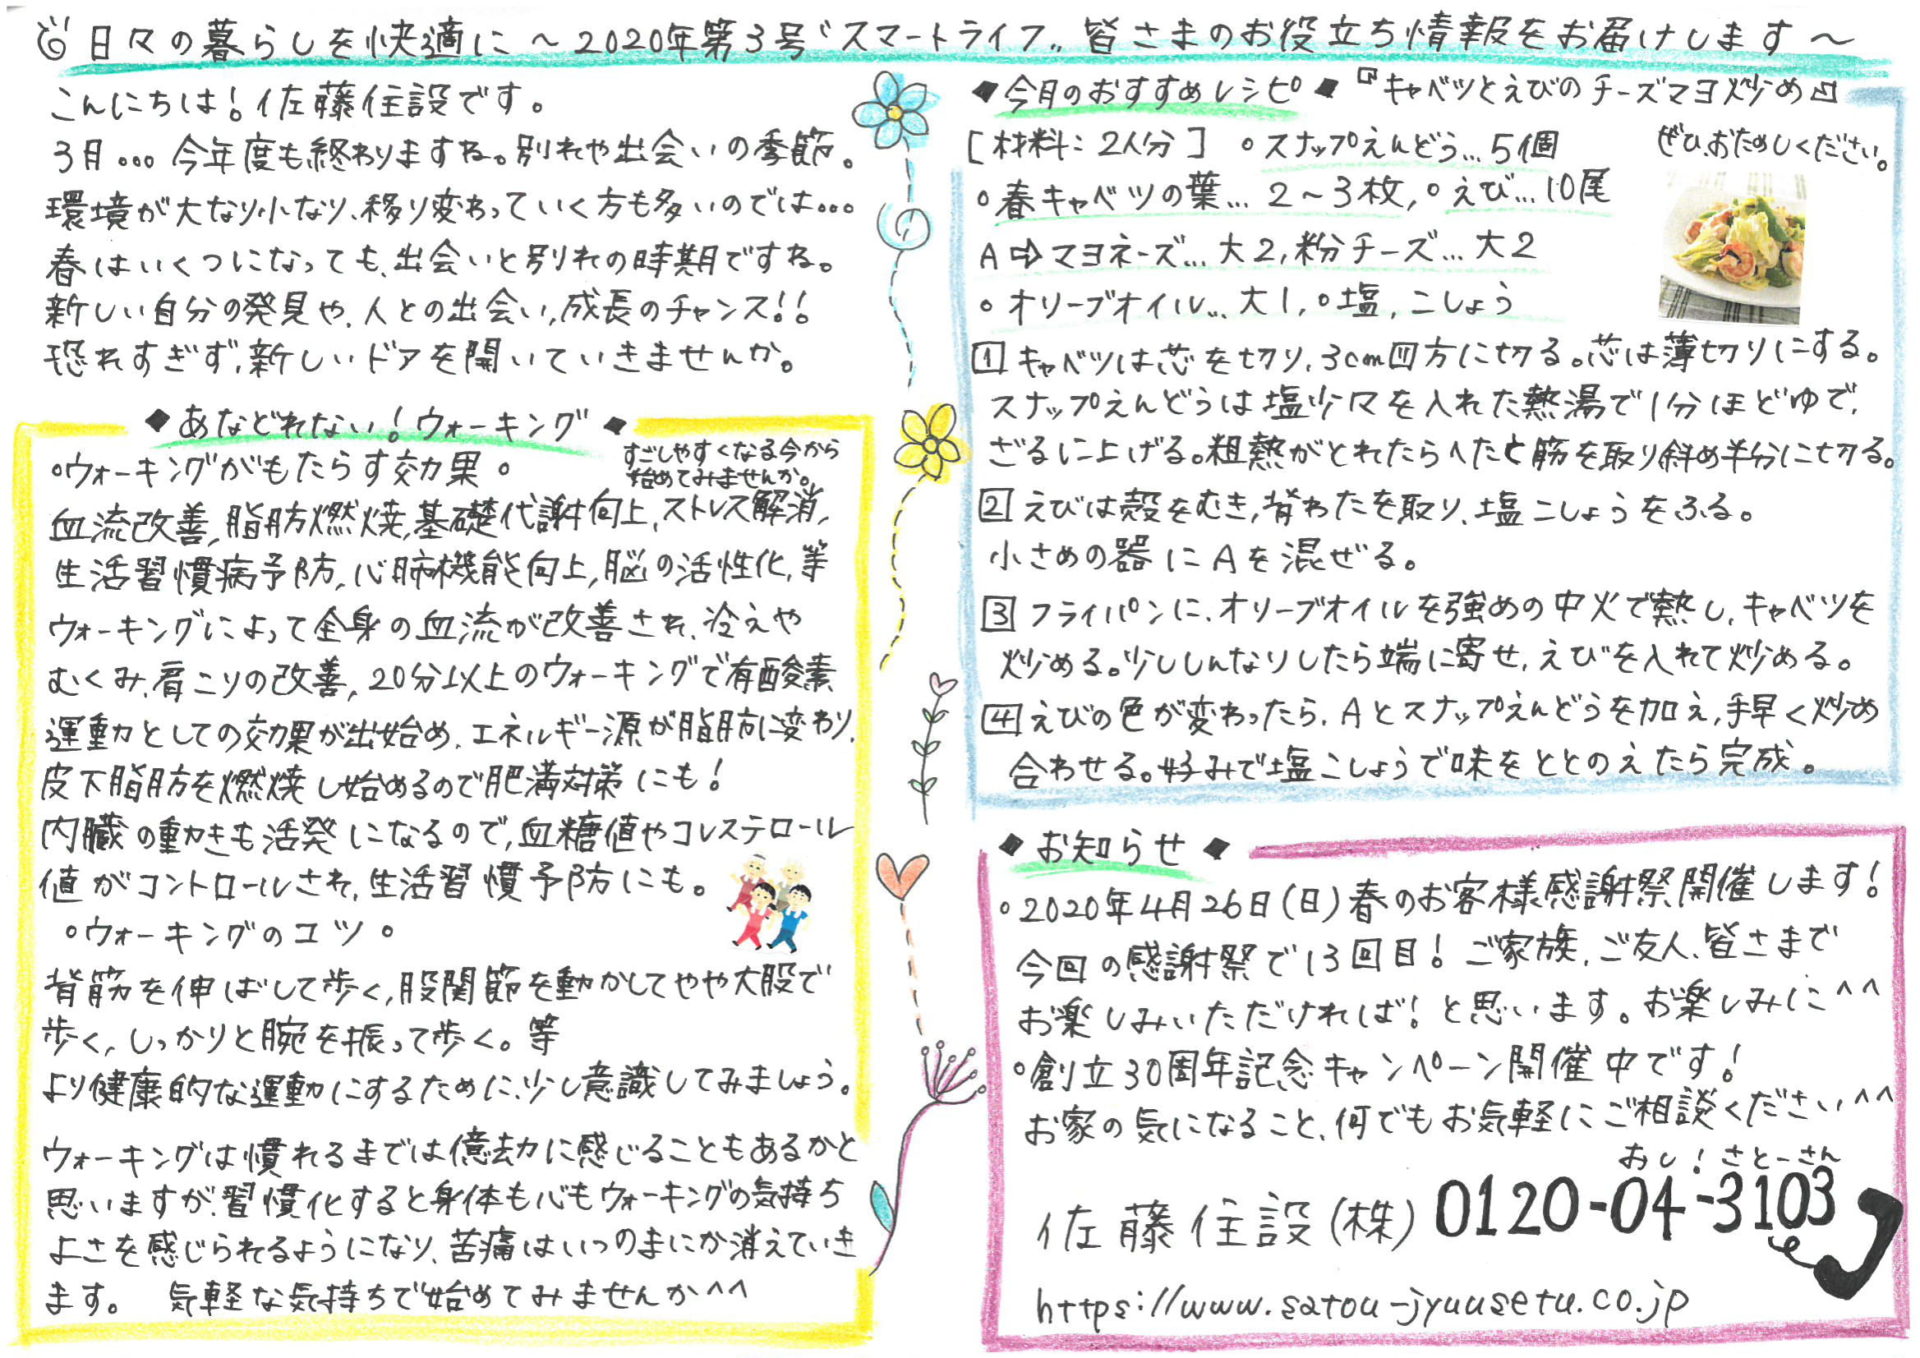 日々の暮らしを快適に ～ 2020年第3号〝スマートライフ〟皆さまのお役立ち情報をお届けします～
こんにちは！佐藤住設です。
3月…今年度も終わりますね。別れや出会いの季節。
環境が大なり小なり、移り変わっていく方も多いのでは…
春はいくつになっても、出会いと別れの時期ですね。
新しい自分の発見や、人との出会い、成長のチャンス！！
恐れすぎず、新しいドアを開いていきませんか。
◆あなどれない！ウォーキング◆
すごしやすくなる今から
始めてみませんか。
○ウォーキングがもたらす効果○
血流改善，脂肪燃焼，基礎代謝向上，ストレス解消，
生活習慣病予防，心肺機能向上，脳の活性化，等
ウォーキングによって全身の血流が改善され、冷えや
むくみ、肩こりの改善，20分以上のウォーキングで有酸素
運動としての効果が出始め、エネルギー源が脂肪に変わり、
皮下脂肪を燃焼し始めるので肥満対策にも！
内臓の動きも活発になるので，血糖値やコレステロール
値がコントロールされ，生活習慣予防にも。
○ウォーキングのコツ○
背筋を伸ばして歩く，股関節を動かしてやや大股で
歩く，しっかりと腕を振って歩く。等
より健康的な運動にするために、少し意識してみましょう。
ウォーキングは慣れるまでは億劫に感じることもあるかと
思いますが、習慣化すると身体も心もウォーキングの気持ち
よさを感じられるようになり、苦痛はいつのまにか消えていき
ます。 気軽な気持ちで始めてみませんか^^
◆今月のおすすめレシピ◆『キャベツとえびのチーズマヨ炒め』
[材料：2人分] ○スナップえんどう…5個
ぜひ、おためしください。
○春キャベツの葉…2～3枚，○えび…10尾
A⇨マヨネーズ…大2，粉チーズ…大2
○オリーブオイル…大1，○塩，こしょう
1 キャベツは芯を切り，3cm四方に切る。芯は薄切りにする。
スナップえんどうは塩少々を入れた熱湯で1分ほどゆで，
ざるに上げる。粗熱がとれたらへたと筋を取り斜め半分に切る。
2 えびは殻をむき，背わたを取り、塩こしょうをふる。
小さめの器にAを混ぜる。
3 フライパンに、オリーブオイルを強めの中火で熱し，キャベツを
炒める。少ししんなりしたら端に寄せ，えびを入れて炒める。
4 えびの色が変わったら，Aとスナップえんどうを加え，手早く炒め
合わせる。好みで塩こしょうで味をととのえたら完成。
◆お知らせ◆
○2020年4月26日(日)春のお客様感謝祭開催します！
今回の感謝祭で13回目！ご家族，ご友人、皆さまで
お楽しみいただければ！と思います。お楽しみに^^
○創立30周年記念キャンペーン開催中です！
お家の気になること、何でもお気軽にご相談ください^^
おし！さとーさん
佐藤住設(株) 0120-04-3103
https://www.satou-jyuusetu.co.jp